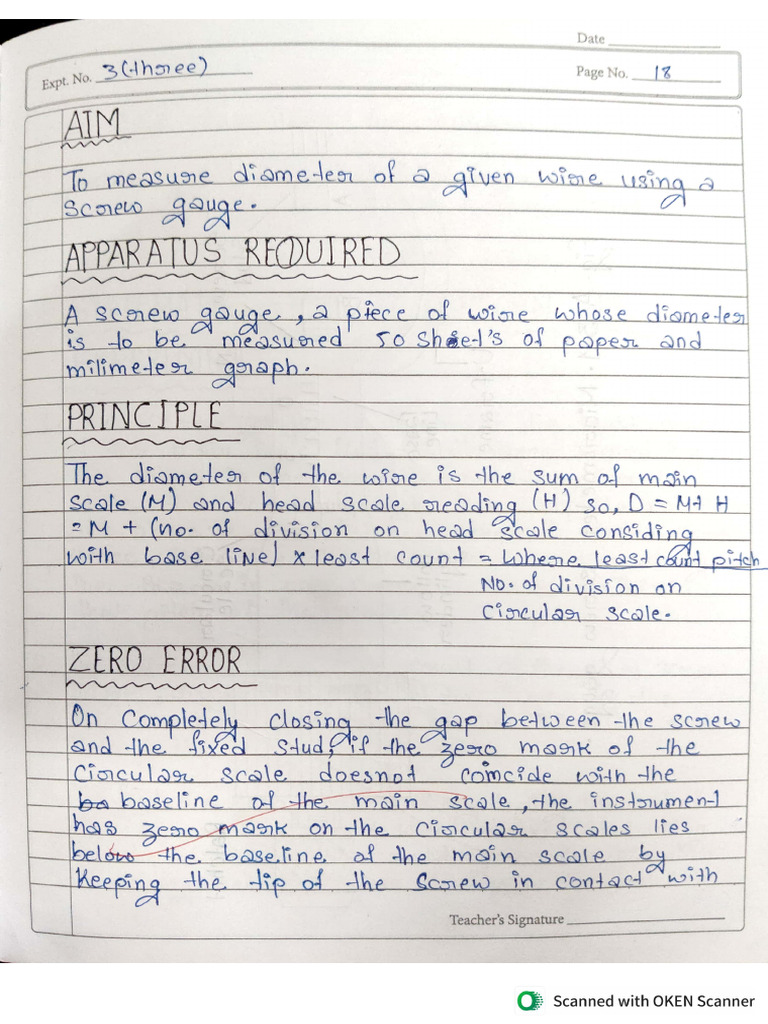 Date
Expt. No. 3 (three)
Page No. 18
AIM
To measure diameter of a given wire using a
screw gauge.
APPARATUS REQUIRED
A screw gauge, a piece of wire whose diameter
is to be measured 50 sheet's of paper and
milimeter graph.
PRINCIPLE
The diameter of the wire is the sum of main
scale (M) and head scale reading (H) so, D = M + H
= M + (no. of division on head scale considing
with base line) x least count = where least count pitch
No. of division on
circular scale.
ZERO ERROR
On completely closing the gap between the screw
and the fixed stud, if the zero mark of the
circular scale doesnot comcide with the
baseline of the main scale, the instrument
has zero mark on the circular scales lies
below the baseline of the main scale by
keeping the tip of the screw in contact with
Teacher's Signature
Scanned with OKEN Scanner